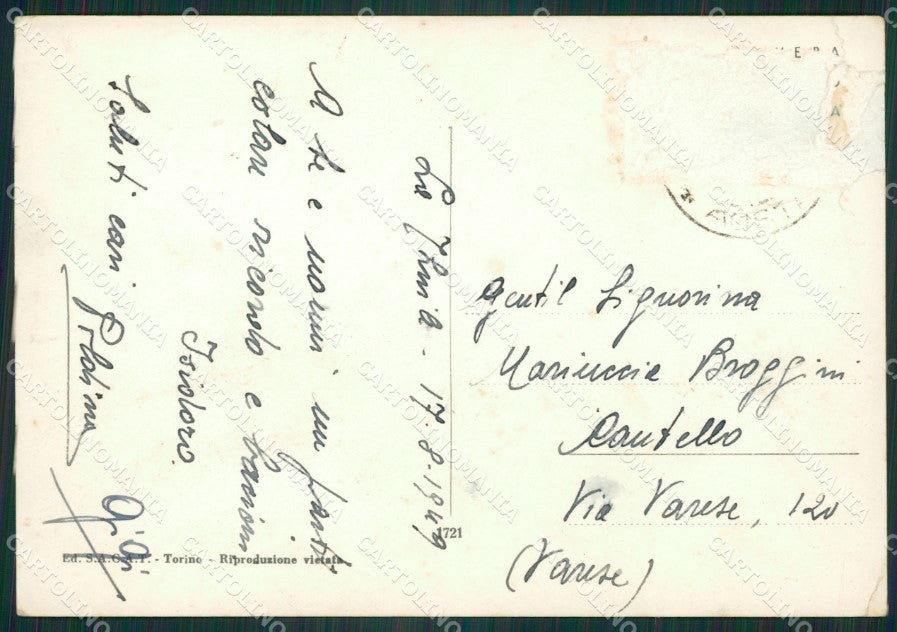 La Thuile - 17.8.1949
A te e nonni un parti-
colare ricordo e bacioni
Isidoro.
Saluti cari Gildina
Gentil Signorina
Mariuccia Broggini
Cantello
Via Varese, 120
(Varese)
1721
Ed. S.A.C.A.T. - Torino - Riproduzione vietata
CARTOLINOMANIA